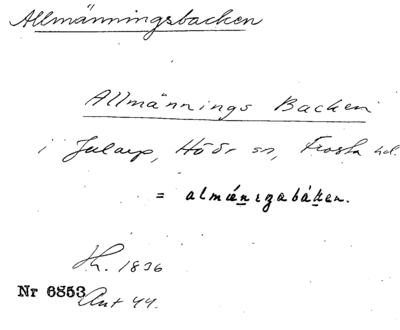 Allmänningsbacken
Allmännings Backen
i Jularp, Höör sn, Frosta hd.
= almäniŋabáken.
H. 1836
Nr 6853
Ant 44.